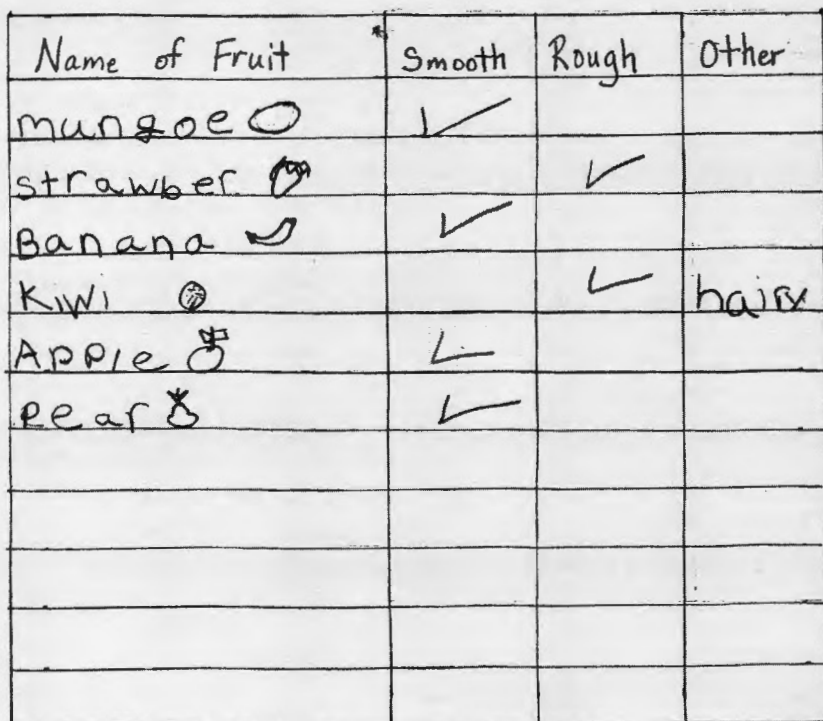 Name of Fruit Smooth Rough Other
mungoe ✓
strawber ✓
Banana ✓
Kiwi ✓ hairy
Apple ✓
pear ✓